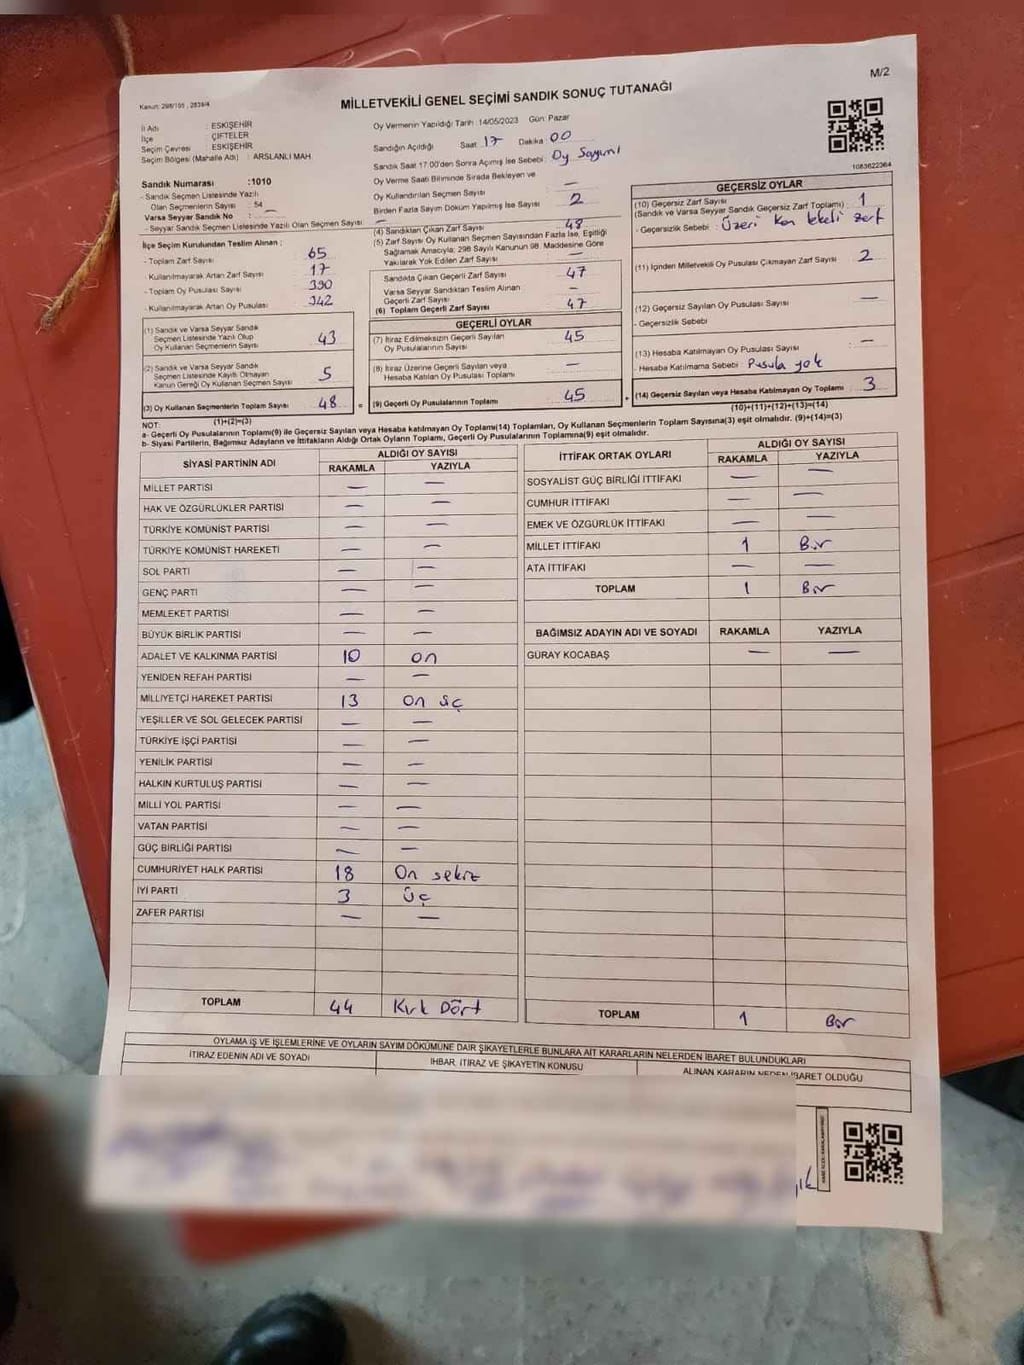 M/2
Kanun: 298/105 , 2839/4
MİLLETVEKİLİ GENEL SEÇİMİ SANDIK SONUÇ TUTANAĞI
İl Adı : ESKİŞEHİR
İlçe : ÇİFTELER
Seçim Çevresi : ESKİŞEHİR
Seçim Bölgesi (Mahalle Adı) : ARSLANLI MAH
Oy Vermenin Yapıldığı Tarih :14/05/2023 Gün: Pazar
Sandığın Açıldığı Saat 17 Dakika 00
Sandık Saat 17.00'den Sonra Açımış İse Sebebi: Oy Sayımı
1083622364
Sandık Numarası :1010
- Sandık Seçmen Listesinde Yazılı
Olan Seçmenlerin Sayısı : 54
Varsa Seyyar Sandık No : —
- Seyyar Sandık Seçmen Listesinde Yazılı Olan Seçmen Sayısı : —
İlçe Seçim Kurulundan Teslim Alınan :
- Toplam Zarf Sayısı 65
- Kullanılmayarak Artan Zarf Sayısı 17
- Toplam Oy Pusulası 390
- Kullanılmayarak Artan Oy Pusulası 342
(1) Sandık ve Varsa Seyyar Sandık
Seçmen Listesinde Yazılı Olup
Oy Kullanan Seçmenlerin Sayısı 43
(2) Sandık ve Varsa Seyyar Sandık
Seçmen Listesinde Kayıtlı Olmayan
Kanun Gereği Oy Kullanan Seçmen Sayısı 5
(3) Oy Kullanan Seçmenlerin Toplam Sayısı 48 =
(1)+(2)=(3)
Oy Verme Saati Bitiminde Sırada Bekleyen ve
Oy Kullandırılan Seçmen Sayısı —
Birden Fazla Sayım Döküm Yapılmış İse Sayısı 2
(4) Sandıktan Çıkan Zarf Sayısı 48
(5) Zarf Sayısı Oy Kullanan Seçmen Sayısından Fazla İse, Eşitliği
Sağlamak Amacıyla; 298 Sayılı Kanunun 98. Maddesine Göre
Yakılarak Yok Edilen Zarf Sayısı —
Sandıkta Çıkan Geçerli Zarf Sayısı 47
Varsa Seyyar Sandıktan Teslim Alınan
Geçerli Zarf Sayısı —
(6) Toplam Geçerli Zarf Sayısı 47
GEÇERLİ OYLAR
(7) İtiraz Edilmeksizin Geçerli Sayılan
Oy Pusulalarının Sayısı 45
(8) İtiraz Üzerine Geçerli Sayılan veya
Hesaba Katılan Oy Pusulası Toplamı —
(9) Geçerli Oy Pusulalarının Toplamı 45 +
GEÇERSİZ OYLAR
(10) Geçersiz Zarf Sayısı 1
(Sandık ve Varsa Seyyar Sandık Geçersiz Zarf Toplamı)
- Geçersizlik Sebebi : Üzeri kan lekeli zarf
(11) İçinden Milletvekili Oy Pusulası Çıkmayan Zarf Sayısı 2
(12) Geçersiz Sayılan Oy Pusulası Sayısı —
- Geçersizlik Sebebi
(13) Hesaba Katılmayan Oy Pusulası Sayısı : —
- Hesaba Katılmama Sebebi : Pusula yok
(14) Geçersiz Sayılan veya Hesaba Katılmayan Oy Toplamı 3
(10)+(11)+(12)+(13)=(14)
NOT:
a- Geçerli Oy Pusulalarının Toplamı(9) ile Geçersiz Sayılan veya Hesaba katılmayan Oy Toplamı(14) Toplamları, Oy Kullanan Seçmenlerin Toplam Sayısına(3) eşit olmalıdır. (9)+(14)=(3)
b- Siyasi Partilerin, Bağımsız Adayların ve İttifakların Aldığı Ortak Oyların Toplamı, Geçerli Oy Pusulalarının Toplamına(9) eşit olmalıdır.
SİYASİ PARTİNİN ADI ALDIĞI OY SAYISI
RAKAMLA YAZIYLA
MİLLET PARTİSİ — —
HAK VE ÖZGÜRLÜKLER PARTİSİ — —
TÜRKİYE KOMÜNİST PARTİSİ — —
TÜRKİYE KOMÜNİST HAREKETİ — —
SOL PARTİ — —
GENÇ PARTİ — —
MEMLEKET PARTİSİ — —
BÜYÜK BİRLİK PARTİSİ — —
ADALET VE KALKINMA PARTİSİ 10 on
YENİDEN REFAH PARTİSİ — —
MİLLİYETÇİ HAREKET PARTİSİ 13 On üç
YEŞİLLER VE SOL GELECEK PARTİSİ — —
TÜRKİYE İŞÇİ PARTİSİ — —
YENİLİK PARTİSİ — —
HALKIN KURTULUŞ PARTİSİ — —
MİLLİ YOL PARTİSİ — —
VATAN PARTİSİ — —
GÜÇ BİRLİĞİ PARTİSİ — —
CUMHURİYET HALK PARTİSİ 18 On sekiz
İYİ PARTİ 3 Üç
ZAFER PARTİSİ — —
TOPLAM 44 Kırk Dört
İTTİFAK ORTAK OYLARI ALDIĞI OY SAYISI
RAKAMLA YAZIYLA
SOSYALİST GÜÇ BİRLİĞİ İTTİFAKI — —
CUMHUR İTTİFAKI — —
EMEK VE ÖZGÜRLÜK İTTİFAKI — —
MİLLET İTTİFAKI 1 Bir
ATA İTTİFAKI — —
TOPLAM 1 Bir
BAĞIMSIZ ADAYIN ADI VE SOYADI RAKAMLA YAZIYLA
GÜRAY KOCABAŞ — —
TOPLAM 1 Bir
OYLAMA İŞ VE İŞLEMLERİNE VE OYLARIN SAYIM DÖKÜMÜNE DAİR ŞİKAYETLERLE BUNLARA AİT KARARLARIN NELERDEN İBARET BULUNDUKLARI
İTİRAZ EDENİN ADI VE SOYADI İHBAR, İTİRAZ VE ŞİKAYETİN KONUSU ALINAN KARARIN NEDEN İBARET OLDUĞU